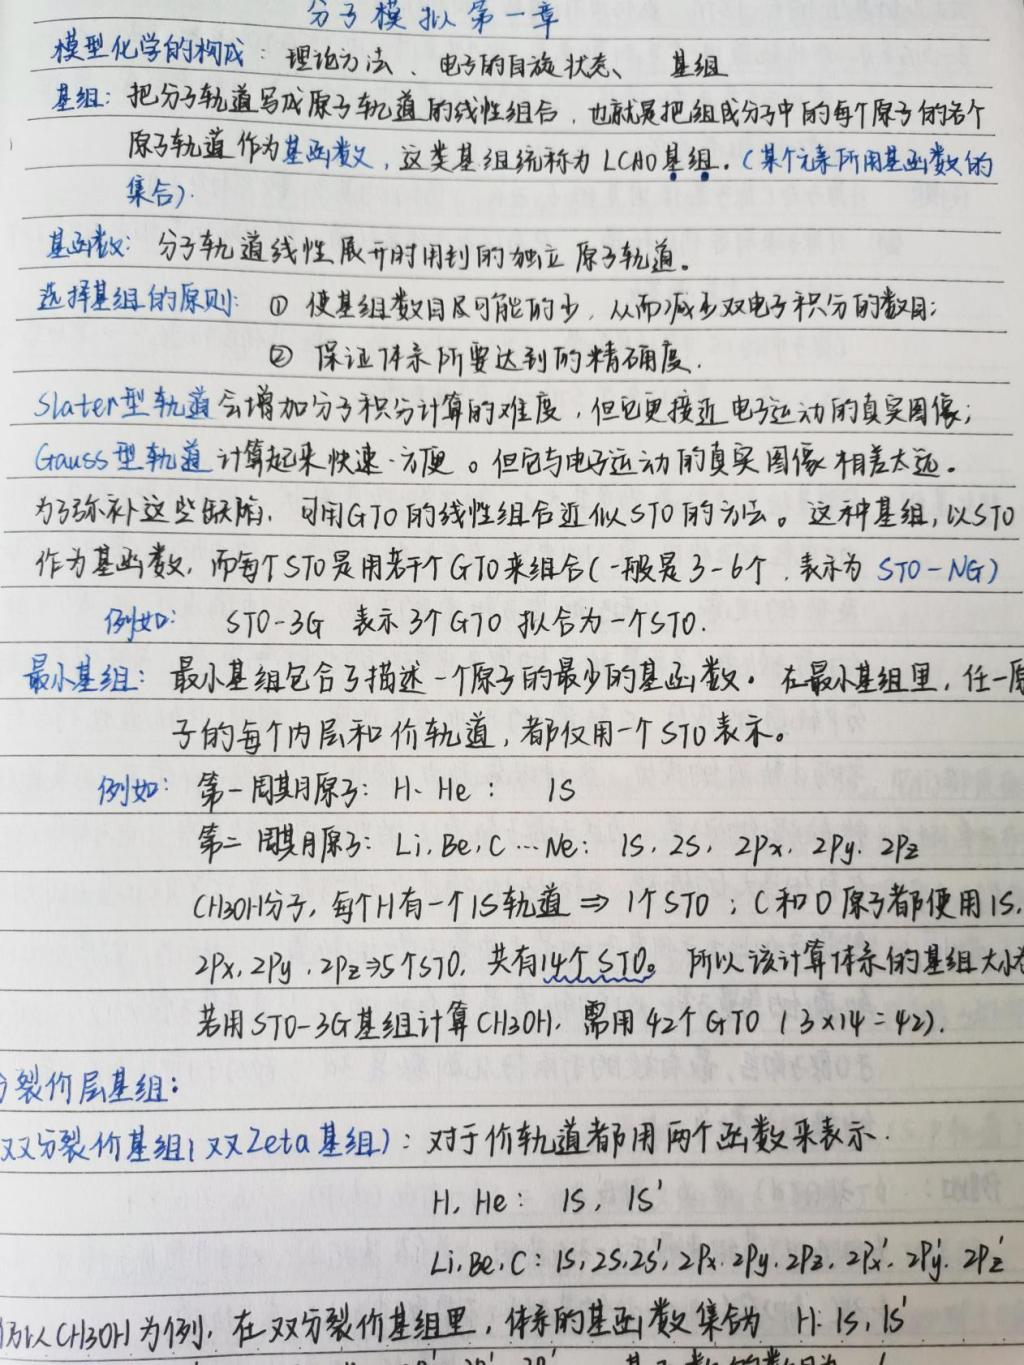 分子模拟第一章
模型化学的构成：理论方法、电子的自旋状态、 基组
基组：把分子轨道写成原子轨道的线性组合，也就是把组成分子中的每个原子的各个
原子轨道作为基函数，这类基组统称为LCAO基组.（某个元素所用基函数的
集合）.
基函数：分子轨道线性展开时用到的独立原子轨道。
选择基组的原则：① 使基组数目尽可能的少，从而减少双电子积分的数目；
② 保证体系所要达到的精确度.
Slater型轨道会增加分子积分计算的难度，但它更接近电子运动的真实图像；
Gauss型轨道计算起来快速·方便。但它与电子运动的真实图像相差太远。
为了弥补这些缺陷，可用GTO的线性组合近似STO的方法。这种基组，以STO
作为基函数，而每个STO是用若干个GTO来组合（一般是3-6个，表示为STO-NG）
例如： STO-3G 表示3个GTO拟合为一个STO.
最小基组：最小基组包含了描述一个原子的最少的基函数。在最小基组里，任一原
子的每个内层和价轨道，都仅用一个STO表示。
例如：第一周期原子：H、He： 1S
第二周期原子：Li,Be,C…Ne：1S, 2S, 2Px, 2Py, 2Pz
CH3OH分子，每个H有一个1S轨道⇒1个STO；C和O原子都使用1S,
2Px,2Py,2Pz⇒5个STO，共有14个STO。所以该计算体系的基组大小
若用STO-3G基组计算CH3OH，需用42个GTO（3×14=42）.
分裂价层基组：
双分裂价基组（双Zeta基组）：对于价轨道都用两个函数来表示.
H, He： 1S, 1S'
Li,Be,C：1S,2S,2S',2Px,2Py,2Pz,2Px',2Py',2Pz'
仍以CH3OH为例，在双分裂价基组里，体系的基函数集合为 H:1S,1S'